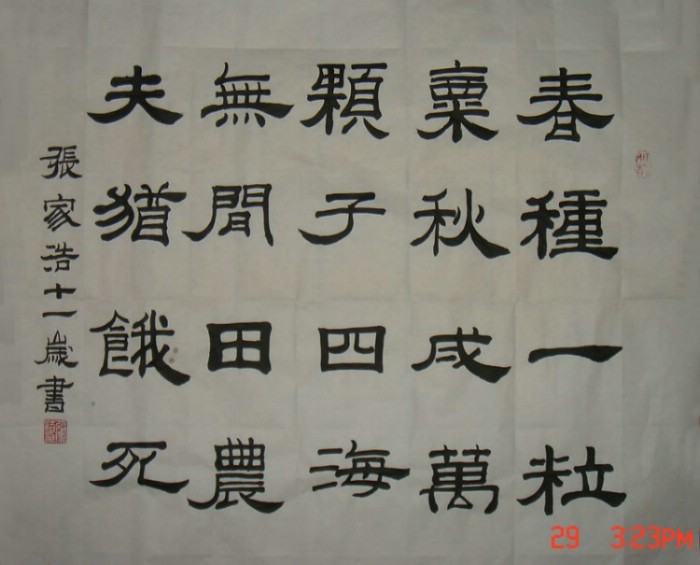 春種一粒
粟秋成萬
顆子四海
無閒田農
夫猶餓死
張家浩十一歲書
29 3:23PM